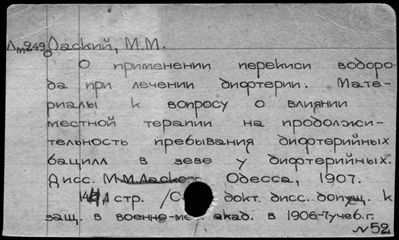 Лм249 Ласкин, М.М.
О применении перекиси водоро-
да при лечении дифтерии. Мате-
риалы к вопросу о влиянии
местной терапии на продолжи-
тельность пребывания дифтерийных
бацилл в зеве у дифтерийных.
Дисс. М.М. Одесса, 1907.
стр. докт. дисс. допущ. к
защ. в военно-мед. акад. в 1906-7 учеб. г.
N 52